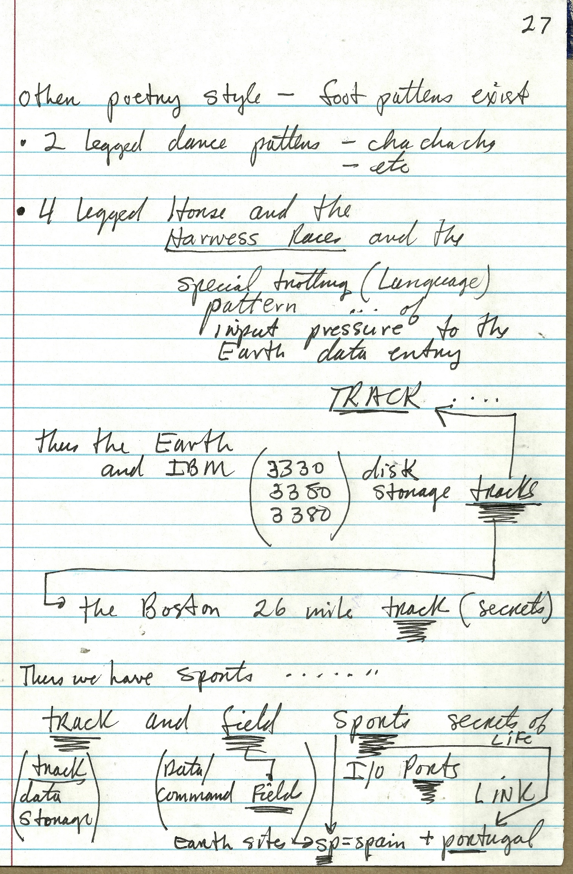 27
Other poetry style - foot pattens exist
• 2 Legged dance pattens - cha chacha
- etc
• 4 Legged Horse and the
Harness Races and the
special trotting (Language)
pattern .... of
input pressure to the
Earth data entry
TRACK ....
thus the Earth
and IBM (3330 disk
3350 storage tracks
3380)
the Boston 26 mile track (secrets)
Thus we have sports ......"
track and field sports secrets of
LiFe
(track (Data/ I/o Ports
data command Field) LiNK
storage)
Earth sites → sp=spain + portugal